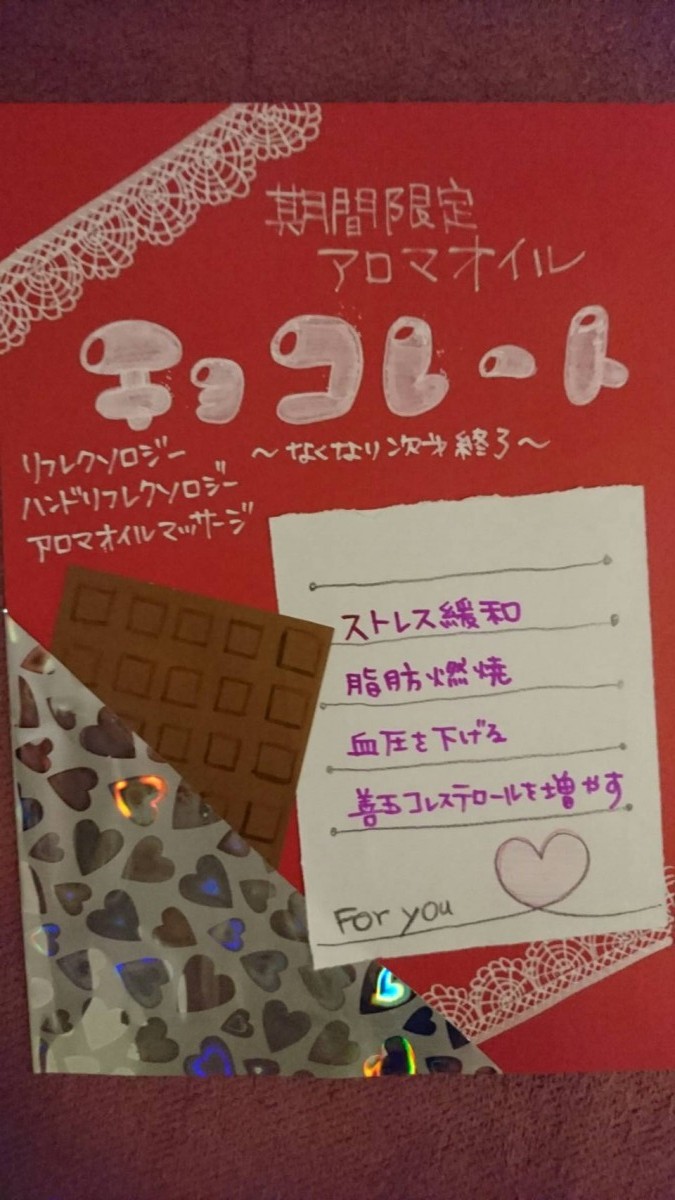 期間限定
アロマオイル
チョコレート
～なくなり次才終了～
リフレクソロジー
ハンドリフレクソロジー
アロマオイルマッサージ
ストレス緩和
脂肪燃焼
血圧を下げる
善玉コレステロールを増やす
For you